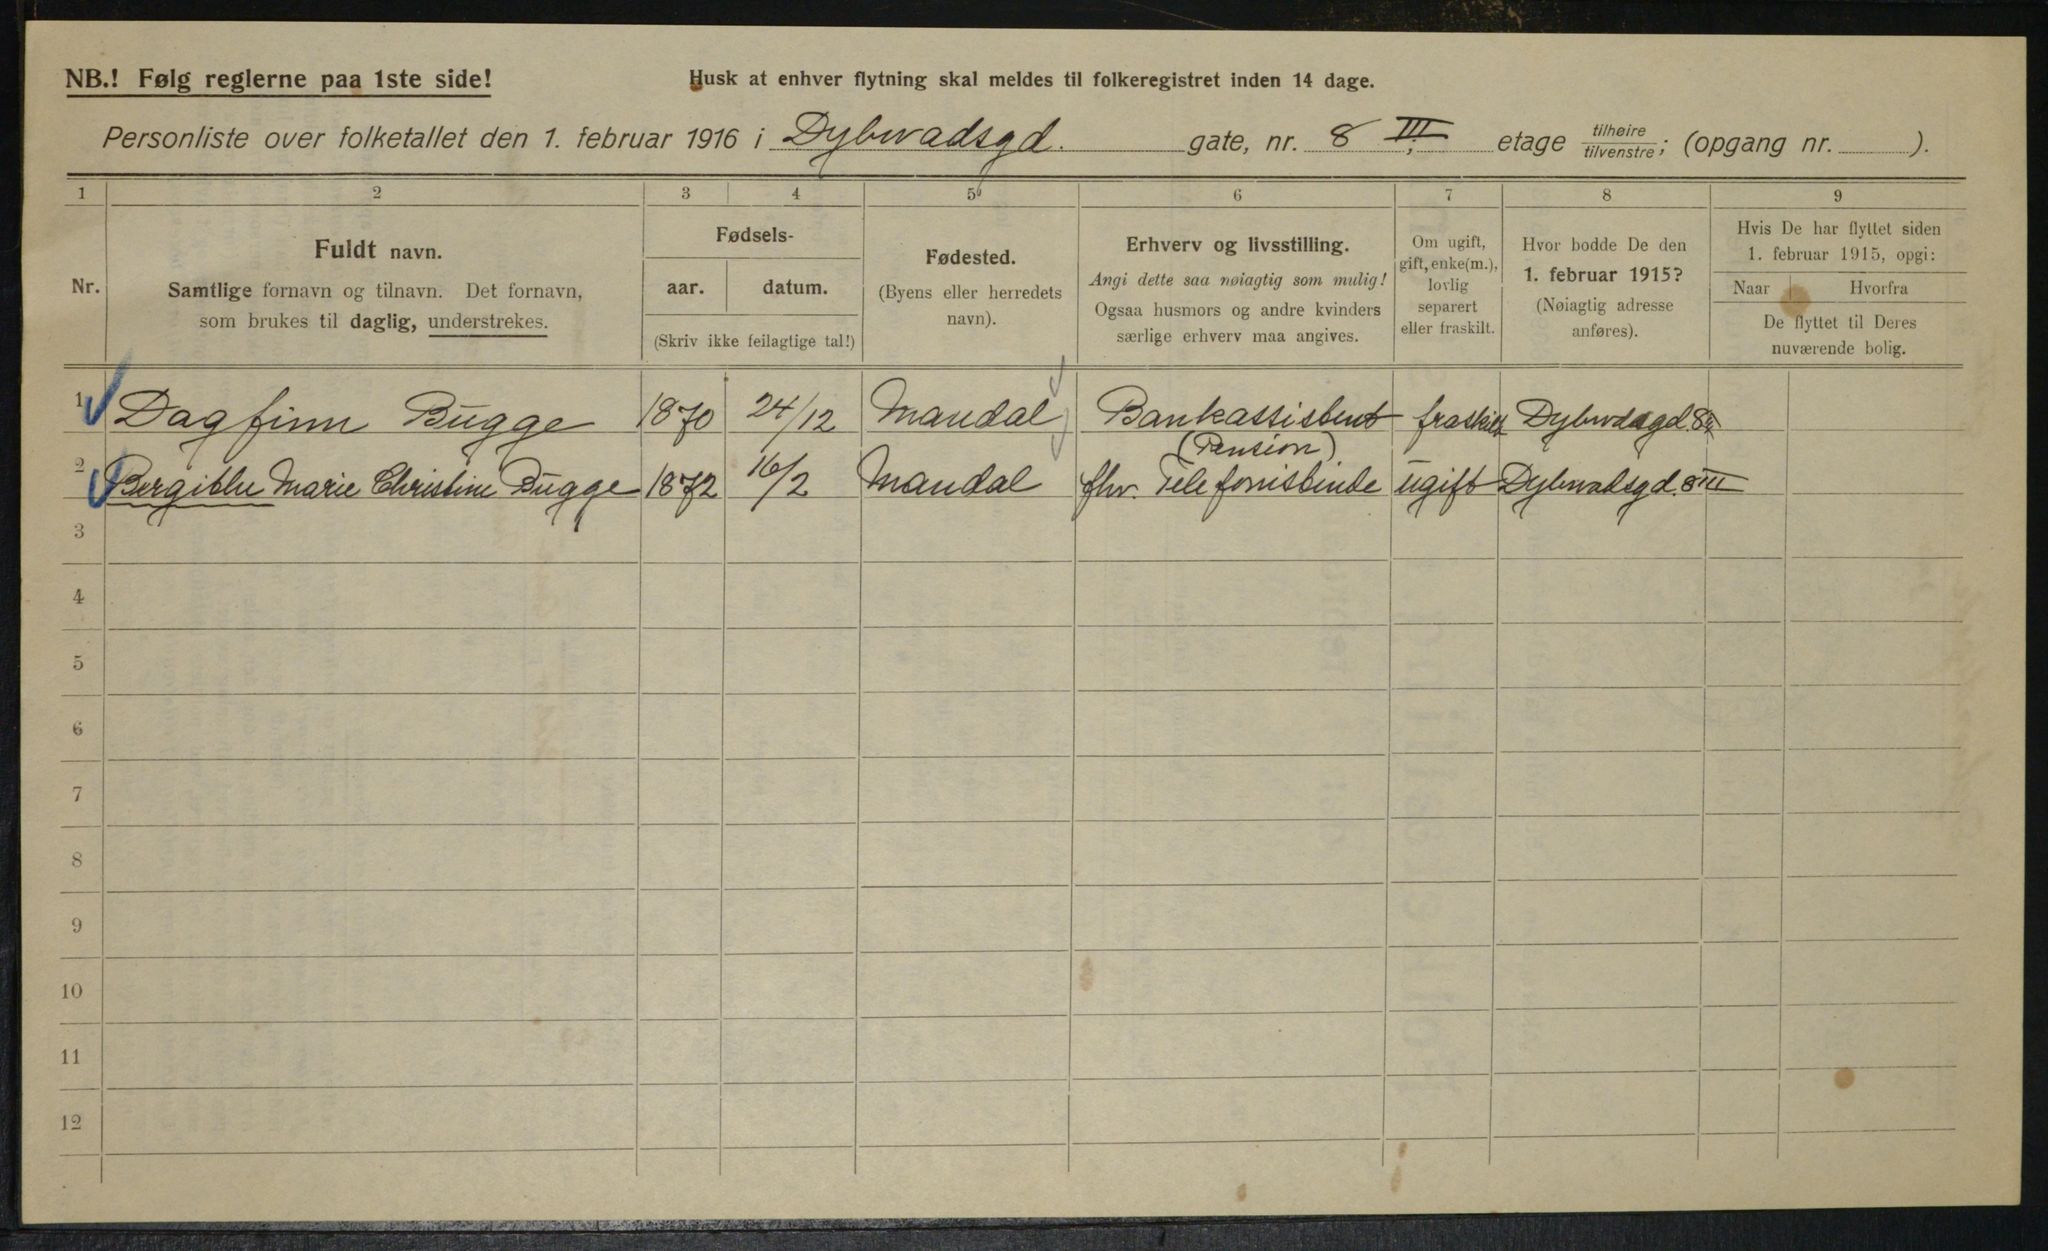 NB.! Følg reglerne paa 1ste side!
Husk at enhver flytning skal meldes til folkeregistret inden 14 dage.
Personliste over folketallet den 1. februar 1916 i Dybwadsgd. gate, nr. 8 III, etage tilhøire/tilvenstre; (opgang nr. ).
1 2 3 4 5 6 7 8 9
Nr.
Fuldt navn.
Samtlige fornavn og tilnavn. Det fornavn,
som brukes til daglig, understrekes.
Fødsels-
aar. datum.
(Skriv ikke feilagtige tal!)
Fødested.
(Byens eller herredets
navn).
Erhverv og livsstilling.
Angi dette saa nøiagtig som mulig!
Ogsaa husmors og andre kvinders
særlige erhverv maa angives.
Om ugift,
gift, enke(m.),
lovlig
separert
eller fraskilt.
Hvor bodde De den
1. februar 1915?
(Nøiagtig adresse
anføres).
Hvis De har flyttet siden
1. februar 1915, opgi:
Naar Hvorfra
De flyttet til Deres
nuværende bolig.
1 Dagfinn Bugge 1870 24/12 Mandal Bankassistent fraskilt Dybwdsgd. 8III
(Pension)
2 Bergithe Marie Christine Bugge 1872 16/2 Mandal fhv. Telefonistinde ugift Dybwadsgd. 8III
3
4
5
6
7
8
9
10
11
12